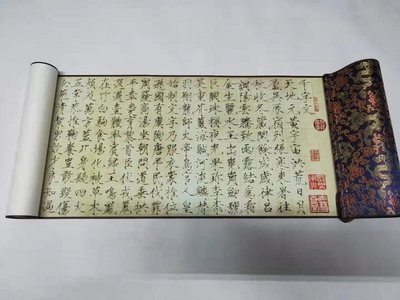 千字文
天地元黃宇宙洪荒日月
盈昃辰宿列張寒來暑往
秋收冬藏閏餘成歲律呂
調陽雲騰致雨露結為霜
金生麗水玉出崑岡劍號
巨闕珠稱夜光果珍李柰
菜重芥薑海鹹河淡鱗潛
羽翔龍師火帝鳥官人皇
始制文字乃服衣裳推位
遜國有虞陶唐弔民伐罪
周發商湯坐朝問道垂拱
平章愛育黎首臣伏戎羌
遐邇壹體率賓歸王鳴鳳
在竹白駒食場化被草木
賴及萬方蓋此身髮四大
五常恭惟鞠養豈敢毀傷